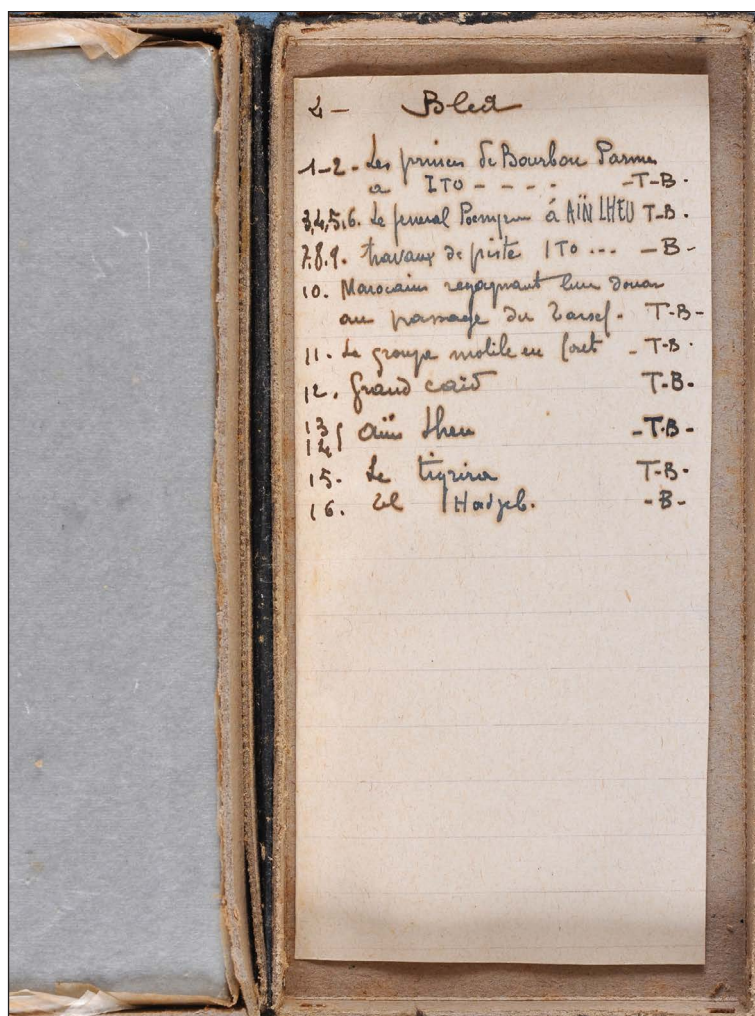 2 - Bled
1-2- Les princes de Bourbon Parme
a ITO - - - - -T-B-
3,4,5,6. Le general Poeymirau à AÏN LHEU T-B.
7.8.9. travaux de piste ITO ... -B-
10. Marocains regagnant leur douar
au passage du - T-B-
11. Le groupe mobile en foret - T-B.
12. Grand caïd T-B-
13 aïn Lheu -T-B-
14
15. Le tigrira T-B-
16. El Hadjeb. -B-